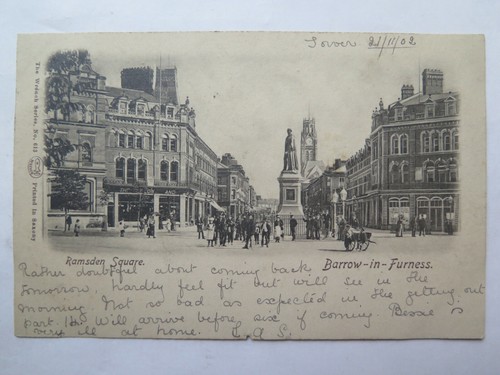 Torver 21/11/02
The Wrench Series, No. 612
Printed in Saxony
Ramsden Square.
Barrow-in-Furness.
Rather doubtful about coming back
tomorrow, hardly feel fit but will see in the
morning. Not so bad as expected in the getting out
part. Will arrive before six if coming. Bessie is
very ill at home.